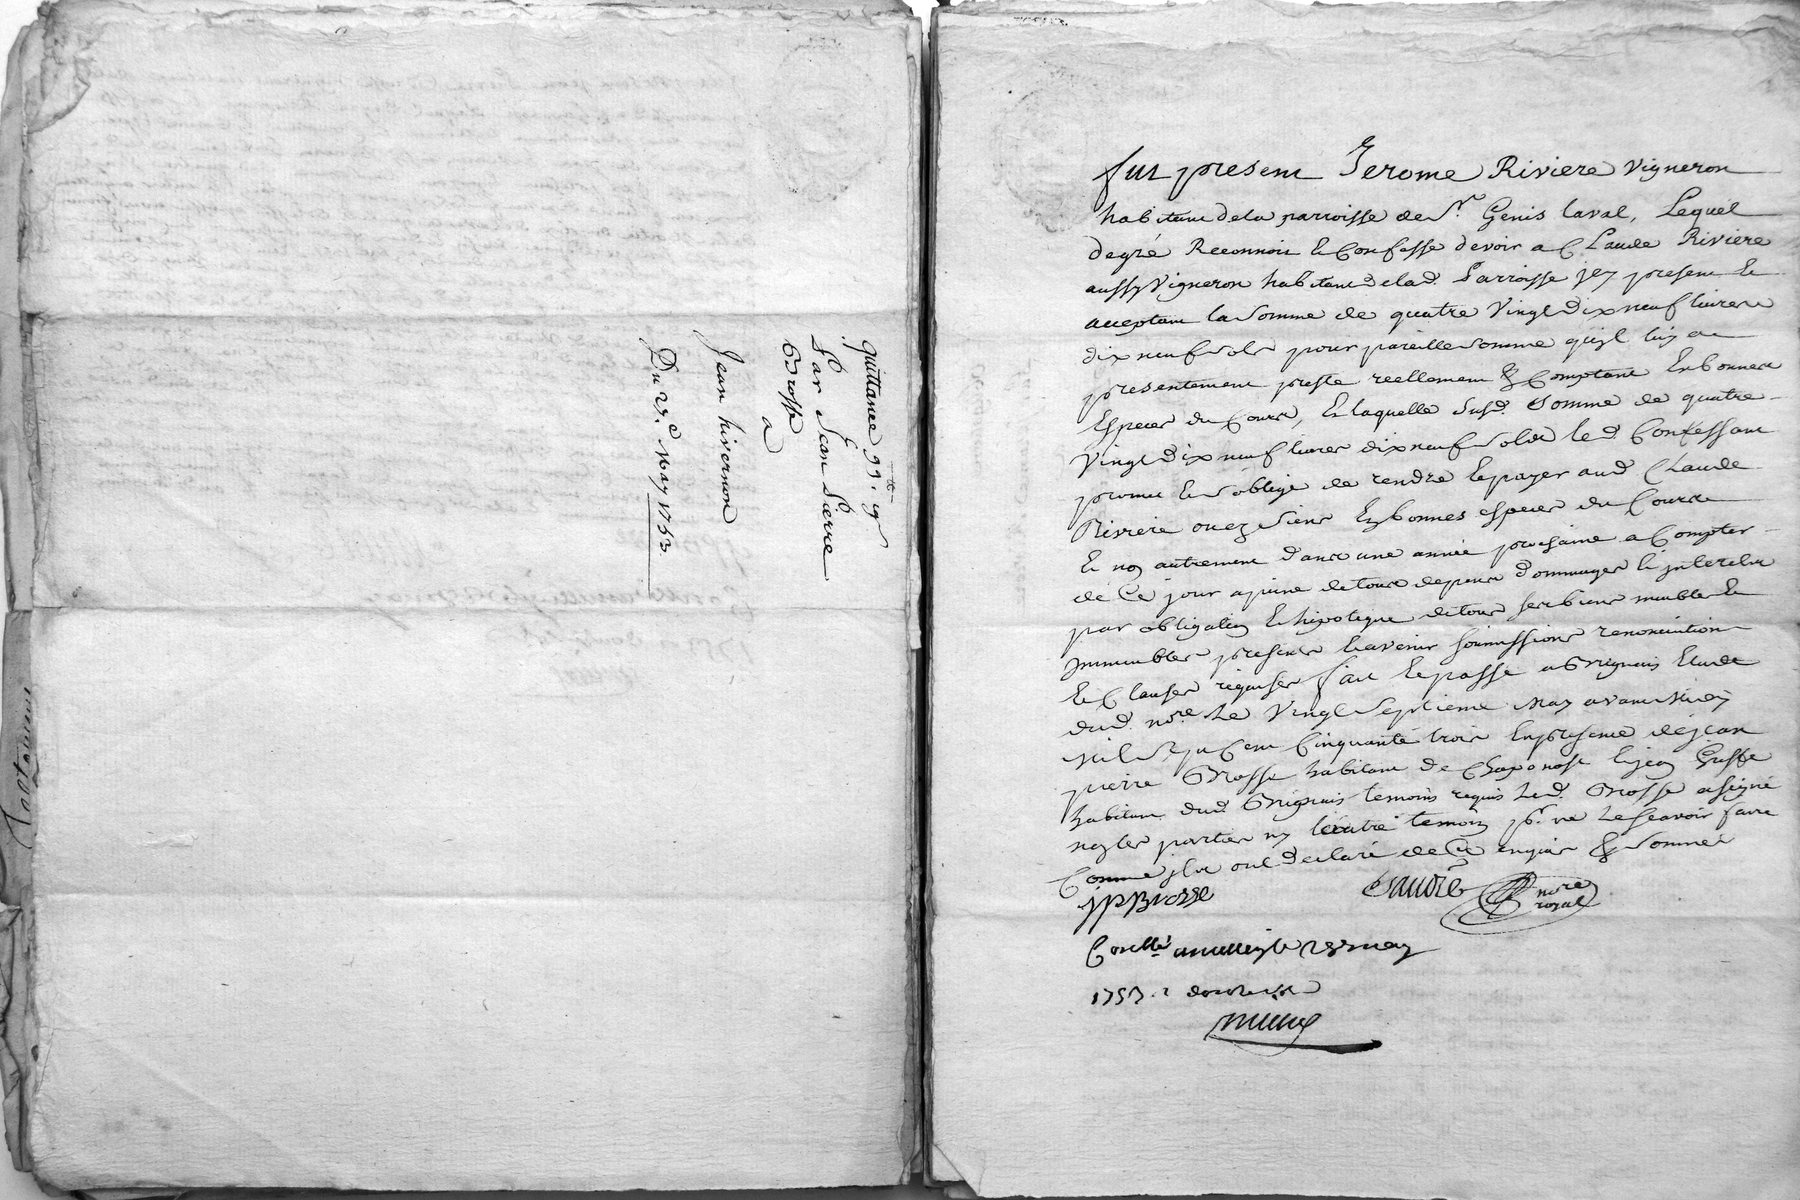 quittance 99.lt 19 s
Par Jean Pierre
Brosse
a
Jean hivernon
Du 27.e may 1753
fut present Jerome Riviere Vigneron
habitant dela parroisse de St. Genis laval, Lequel
degré Reconnoit & Confesse devoir a Claude Riviere
aussy Vigneron habitant delad. Parroisse jcy present &
acceptant la Somme de quatre Vingt Dix neuf livres
dix neuf Sols pour pareille Somme qu'jl luy a
presentement preste reellement & Comptant En bonnes
Especes du Cours, & laquelle Susd. Somme de quatre
Vingt Dix neuf livres dix neuf Sols led. Confessant
promet & S'oblige de rendre & payer aud. Claude
Riviere ou ez Siens En bonnes especes du Cours
& non autrement dans une année prochaine a Compter
de Ce jour a peine de tous depens dommages & jnterets
par obligation & hipoteque de tous ses biens meubles &
jmmeubles presents & avenir Soumissions renonciation
& Clauses requises fait & passé a Brignais Etude
dud. nore. Le Vingt Septieme May avant Midy
Mil Sept Cent Cinquante trois En presence de jean
pierre Brosse habitant de Chaponost & jean
habitant dud. Brignais temoins requis Led. Brosse a signé
non les parties ny l'autre temoin pr. ne Le Scavoir faire
Comme jls ont declaré de Ce enquis & Sommés
jp Brosse
nore royal
Conllé 
1753